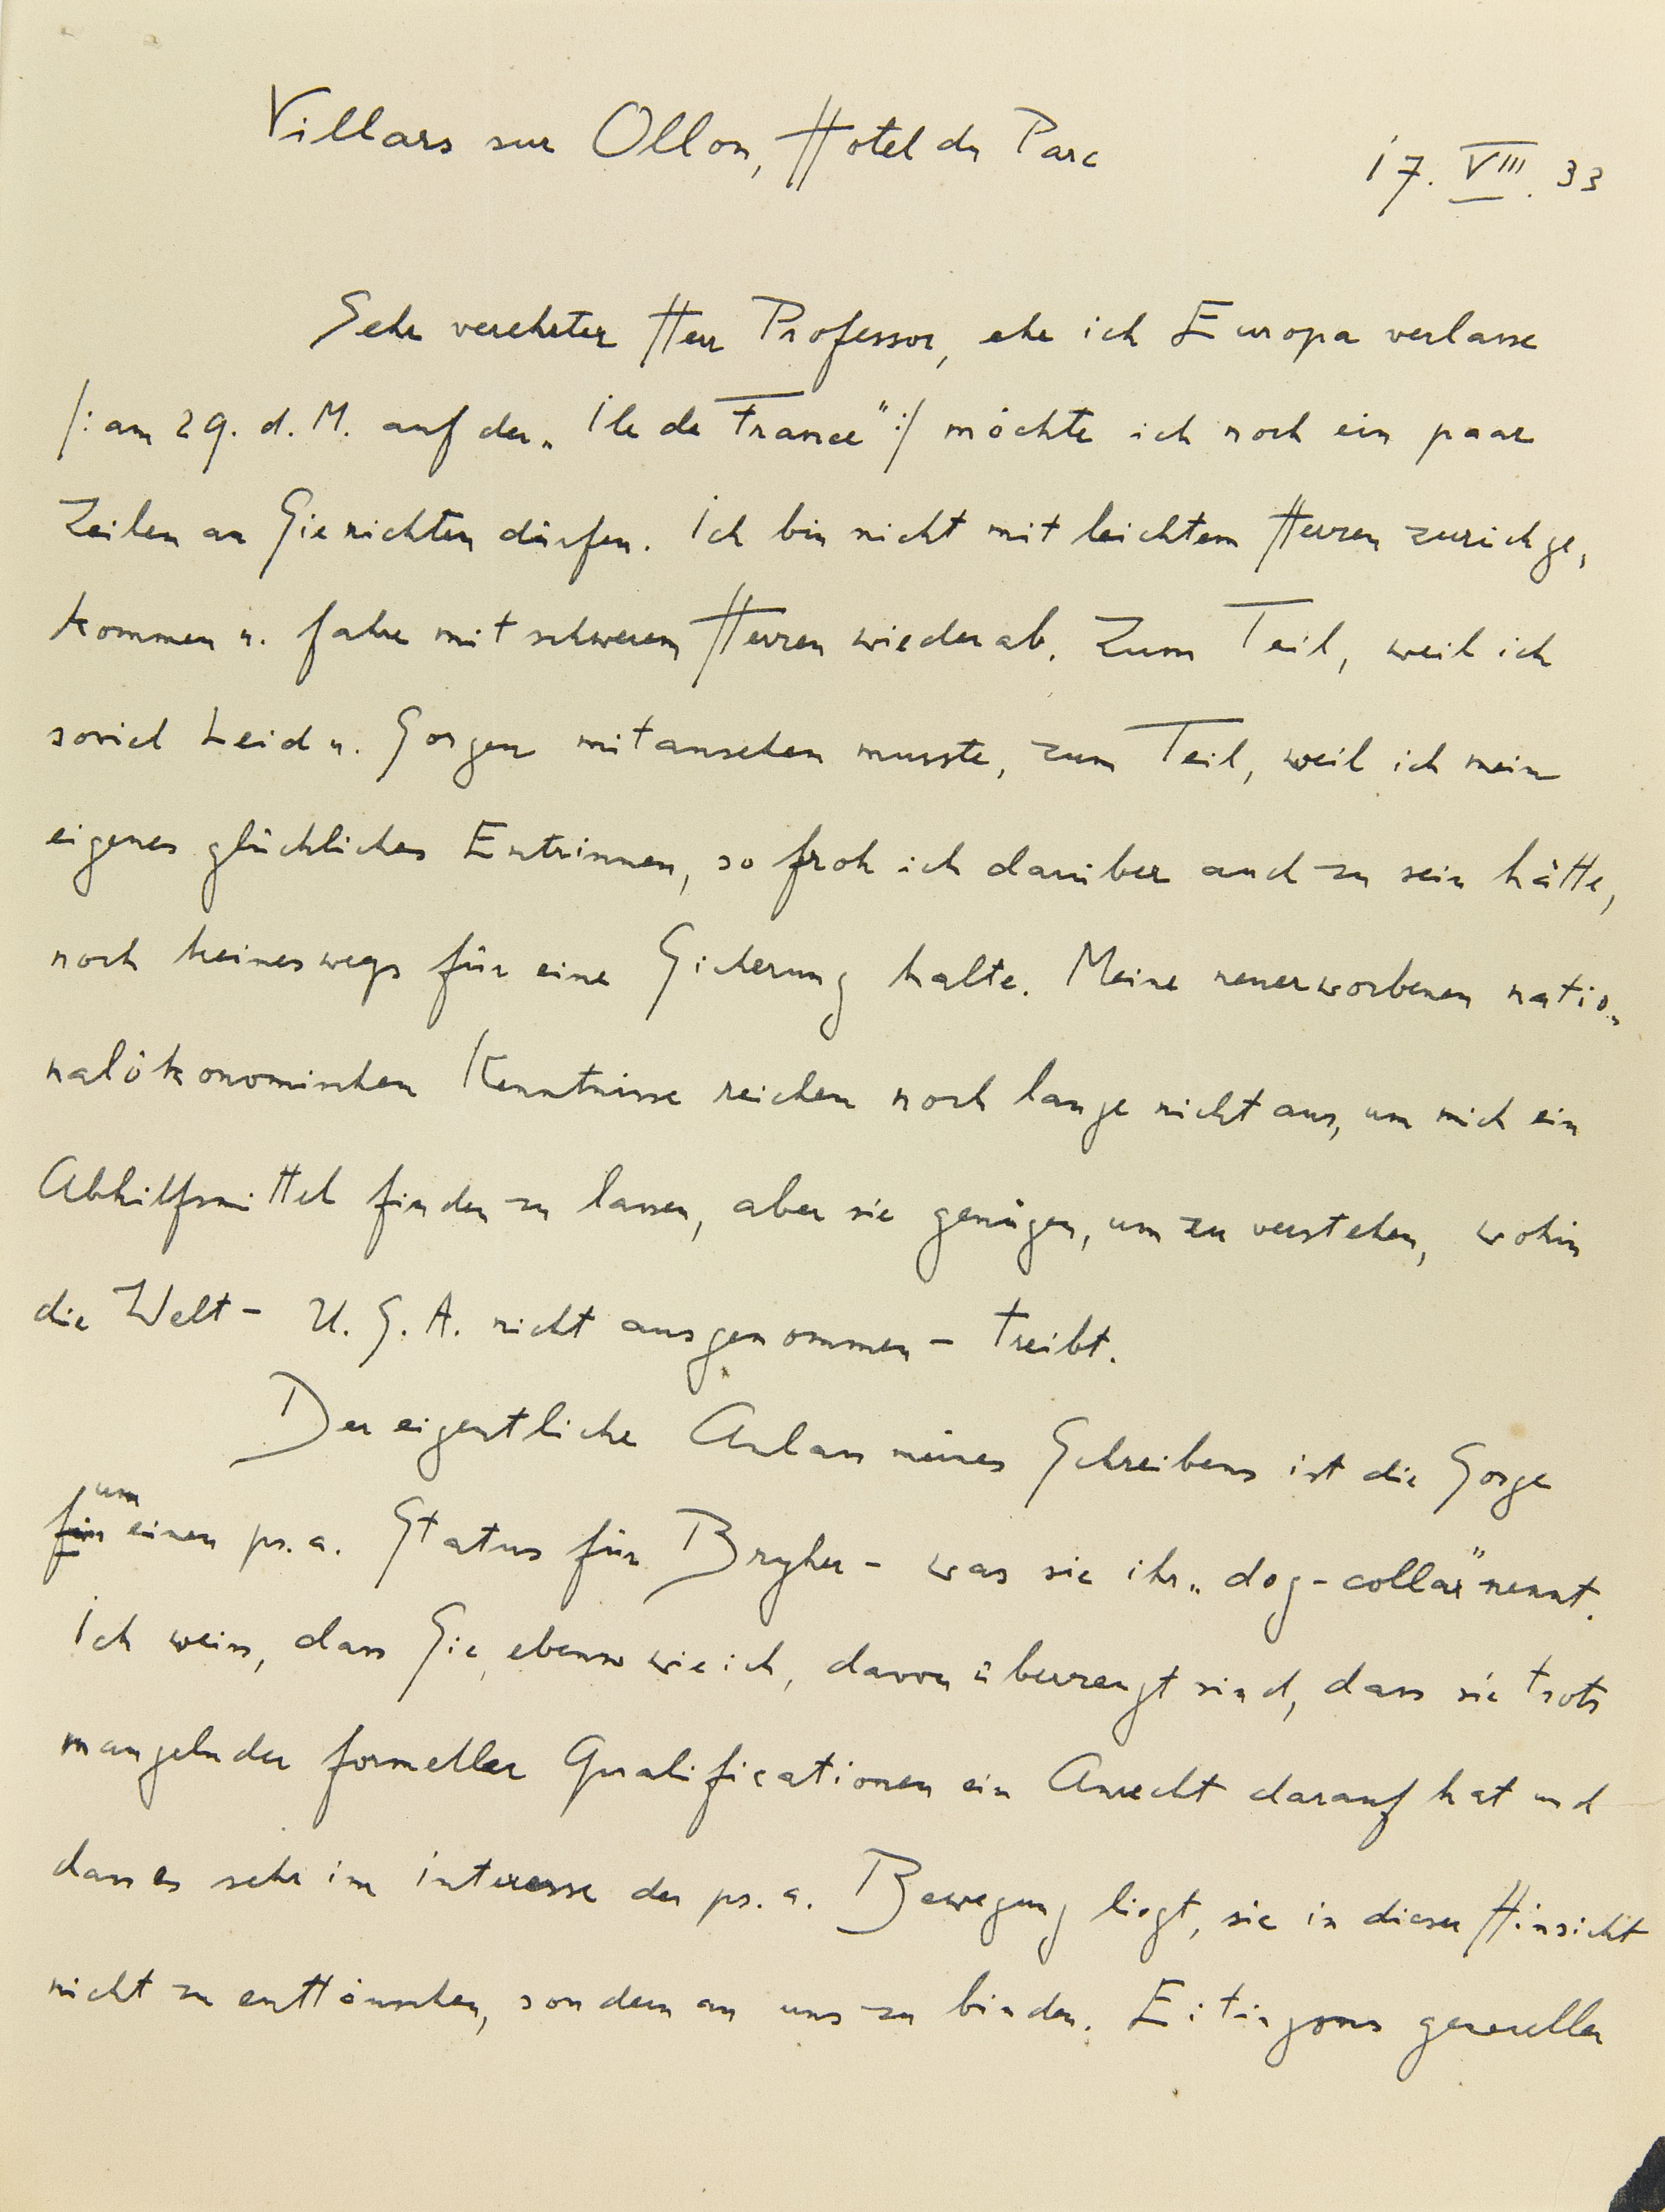 Villars sur Ollon, Hotel du Parc
17. VIII. 33
Sehr verehrter Herr Professor, ehe ich Europa verlasse
/: am 29. d. M. auf der „Ile de France“ :/ möchte ich noch ein paar
Zeilen an Sie richten dürfen. Ich bin nicht mit leichtem Herzen zurückge-
kommen u. fahre mit schwerem Herzen wieder ab. Zum Teil, weil ich
soviel Leid u. Sorgen mitansehen musste, zum Teil, weil ich mein
eigenes glückliches Entrinnen, so froh ich darüber auch zu sein hätte,
noch keineswegs für eine Sicherung halte. Meine neuerworbenen natio-
nalökonomischen Kenntnisse reichen noch lange nicht aus, um mich ein
Abhilfsmittel finden zu lassen, aber sie genügen, um zu verstehen, wohin
die Welt - U. S. A. nicht ausgenommen - treibt.
Der eigentliche Anlass meines Schreibens ist die Sorge
für um einen ps. a. Status für Bryher - was sie ihr „dog-collar“ nennt.
Ich weiss, dass Sie, ebenso wie ich, davon überzeugt sind, dass sie trotz
mangelnder formeller Qualificationen ein Anrecht darauf hat und
dass es sehr im Interesse der ps. a. Bewegung liegt, sie in dieser Hinsicht
nicht zu enttäuschen, sondern an uns zu binden. Eitingons generelle